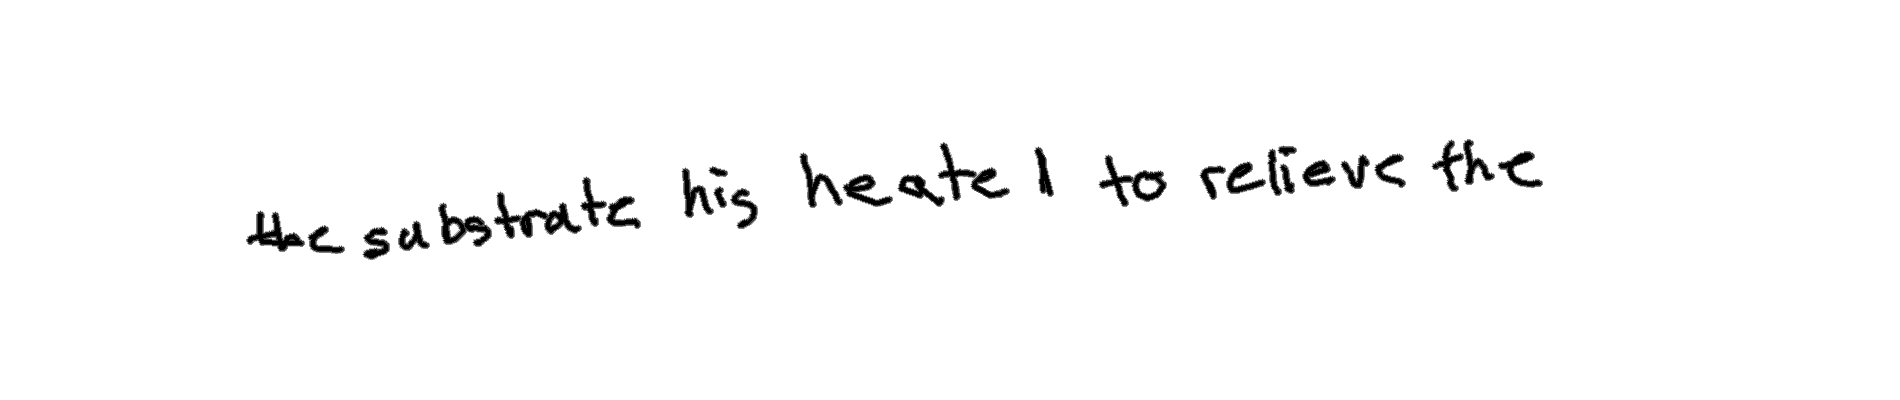 the substrate his heate l to relieve the